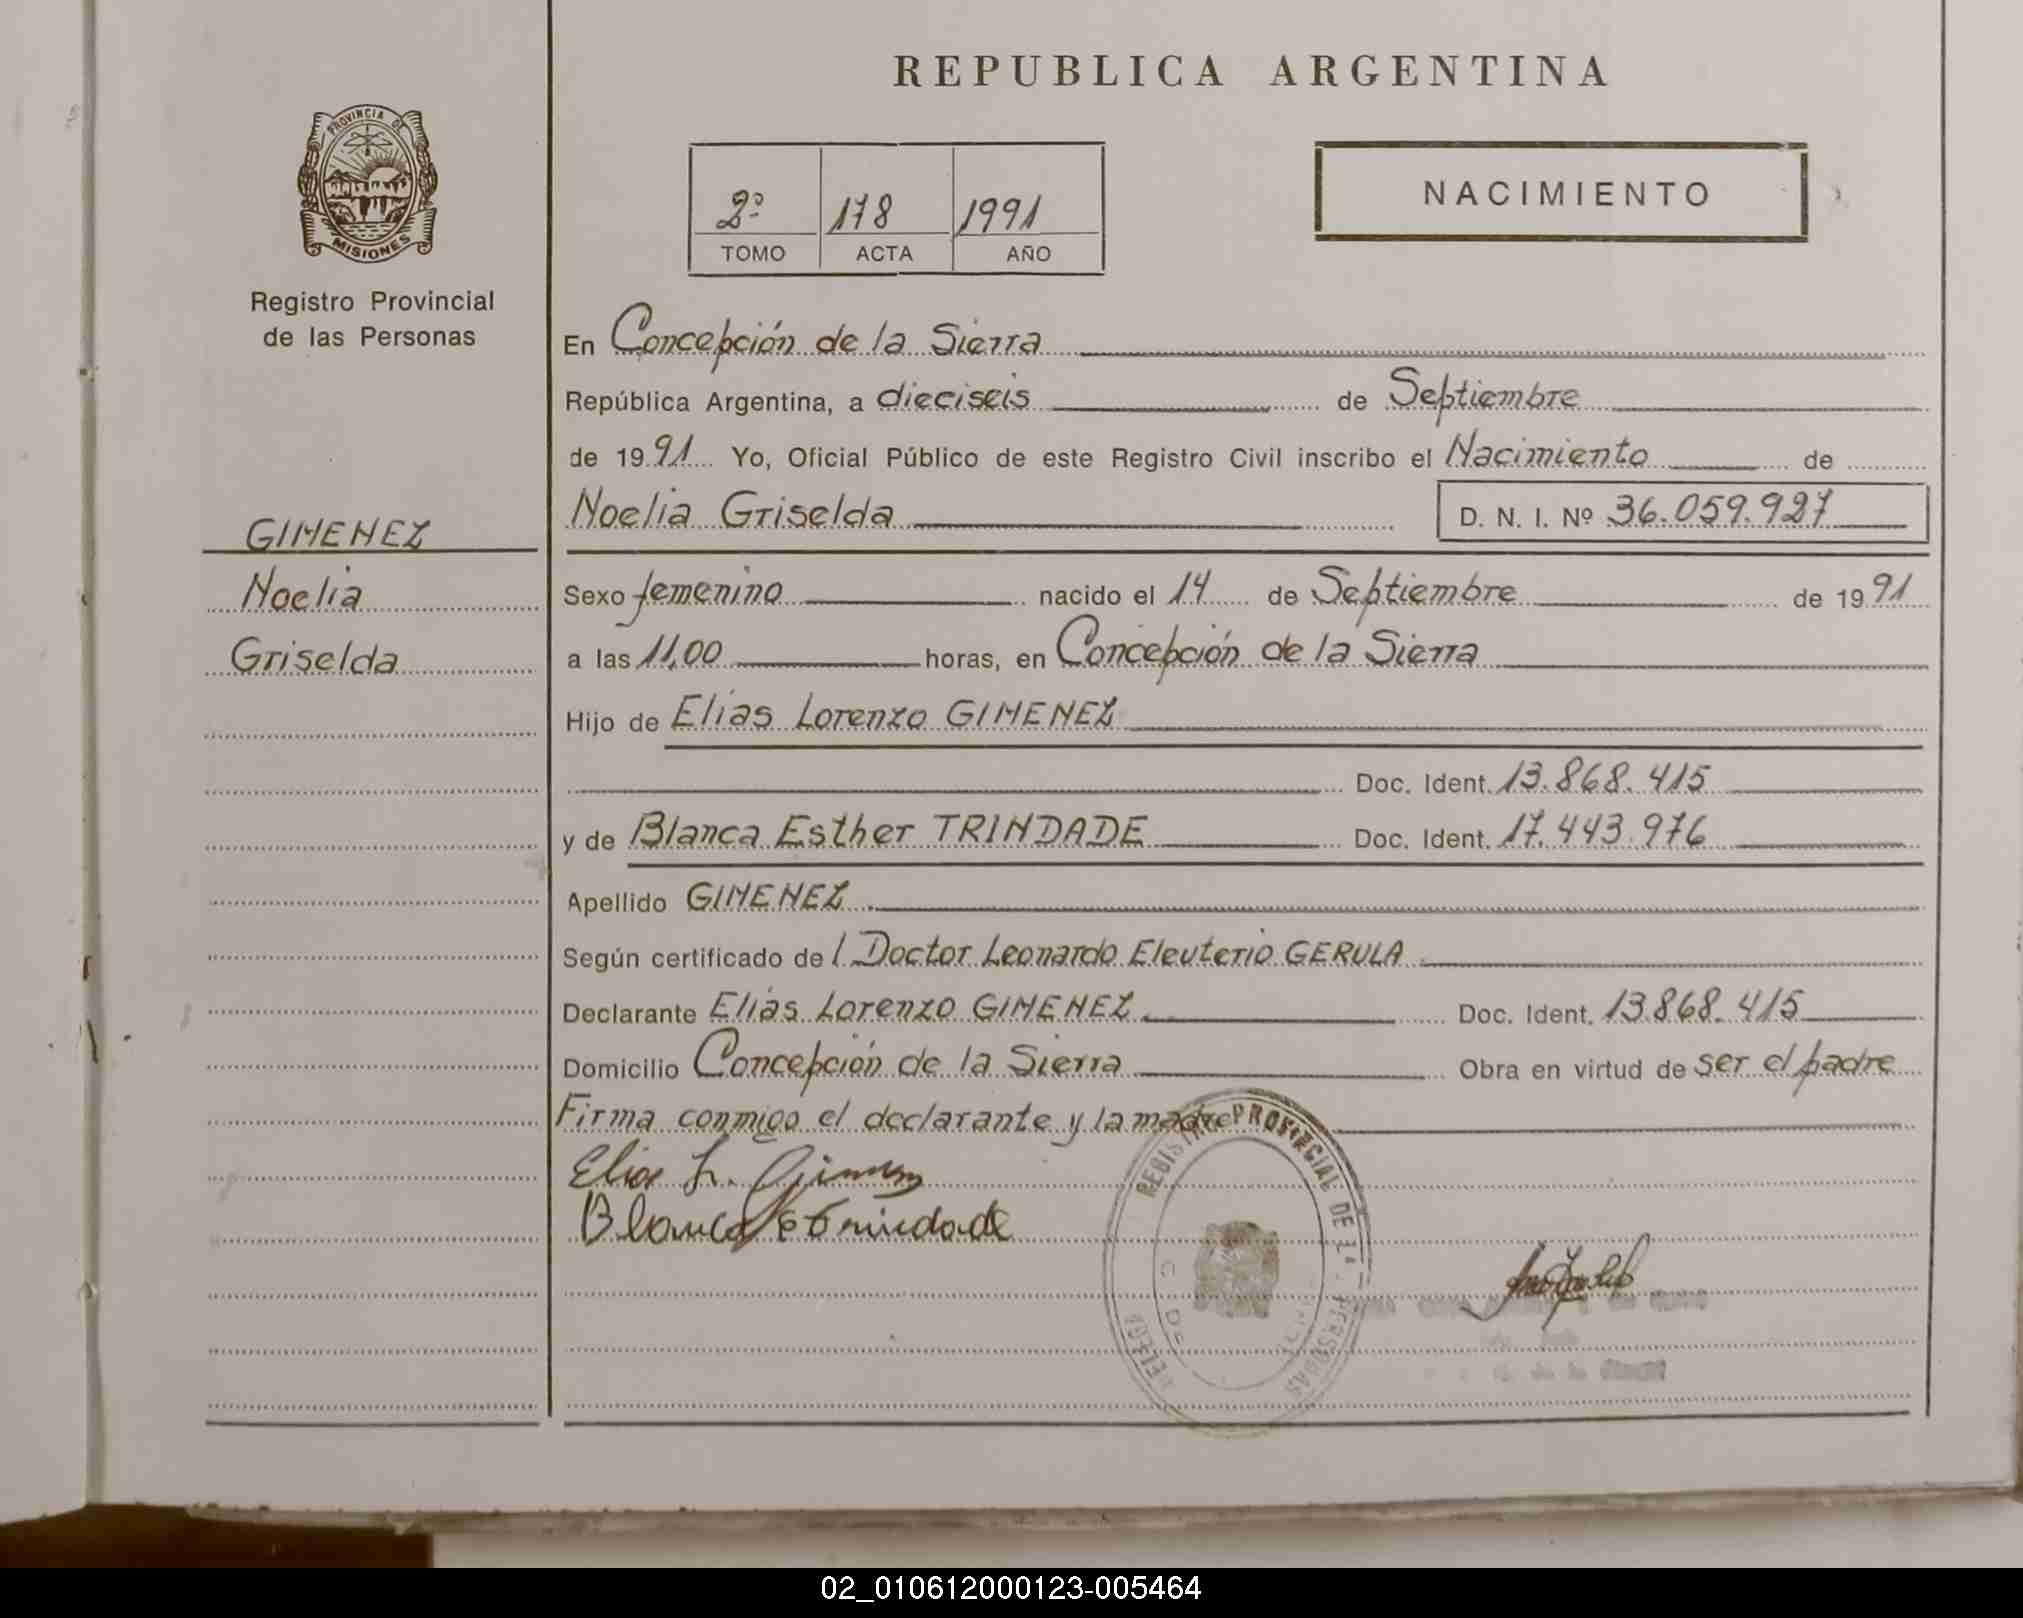 REPUBLICA ARGENTINA
PROVINCIA DE
MISIONES
Registro Provincial
de las Personas
2º 178 1991
TOMO ACTA AÑO
NACIMIENTO
En Concepción de la Sierra
República Argentina, a dieciseis de Septiembre
de 1991 Yo, Oficial Público de este Registro Civil inscribo el Nacimiento de
Noelia Griselda D. N. I. Nº 36.059.927
GIMENEZ
Noelia
Griselda
Sexo femenino nacido el 14 de Septiembre de 1991
a las 11,00 horas, en Concepción de la Sierra
Hijo de Elias Lorenzo GIMENEZ
Doc. Ident. 13.868.415
y de Blanca Esther TRINDADE Doc. Ident. 17.443.976
Apellido GIMENEZ
Según certificado del Doctor Leonardo Eleuterio GERULA
Declarante Elias Lorenzo GIMENEZ Doc. Ident. 13.868.415
Domicilio Concepción de la Sierra Obra en virtud de ser el padre
Firma conmigo el declarante y la madre
Elias L. Gimenez
Blanca E Trindade
REGISTRO PROVINCIAL DE LAS PERSONAS
02_010612000123-005464